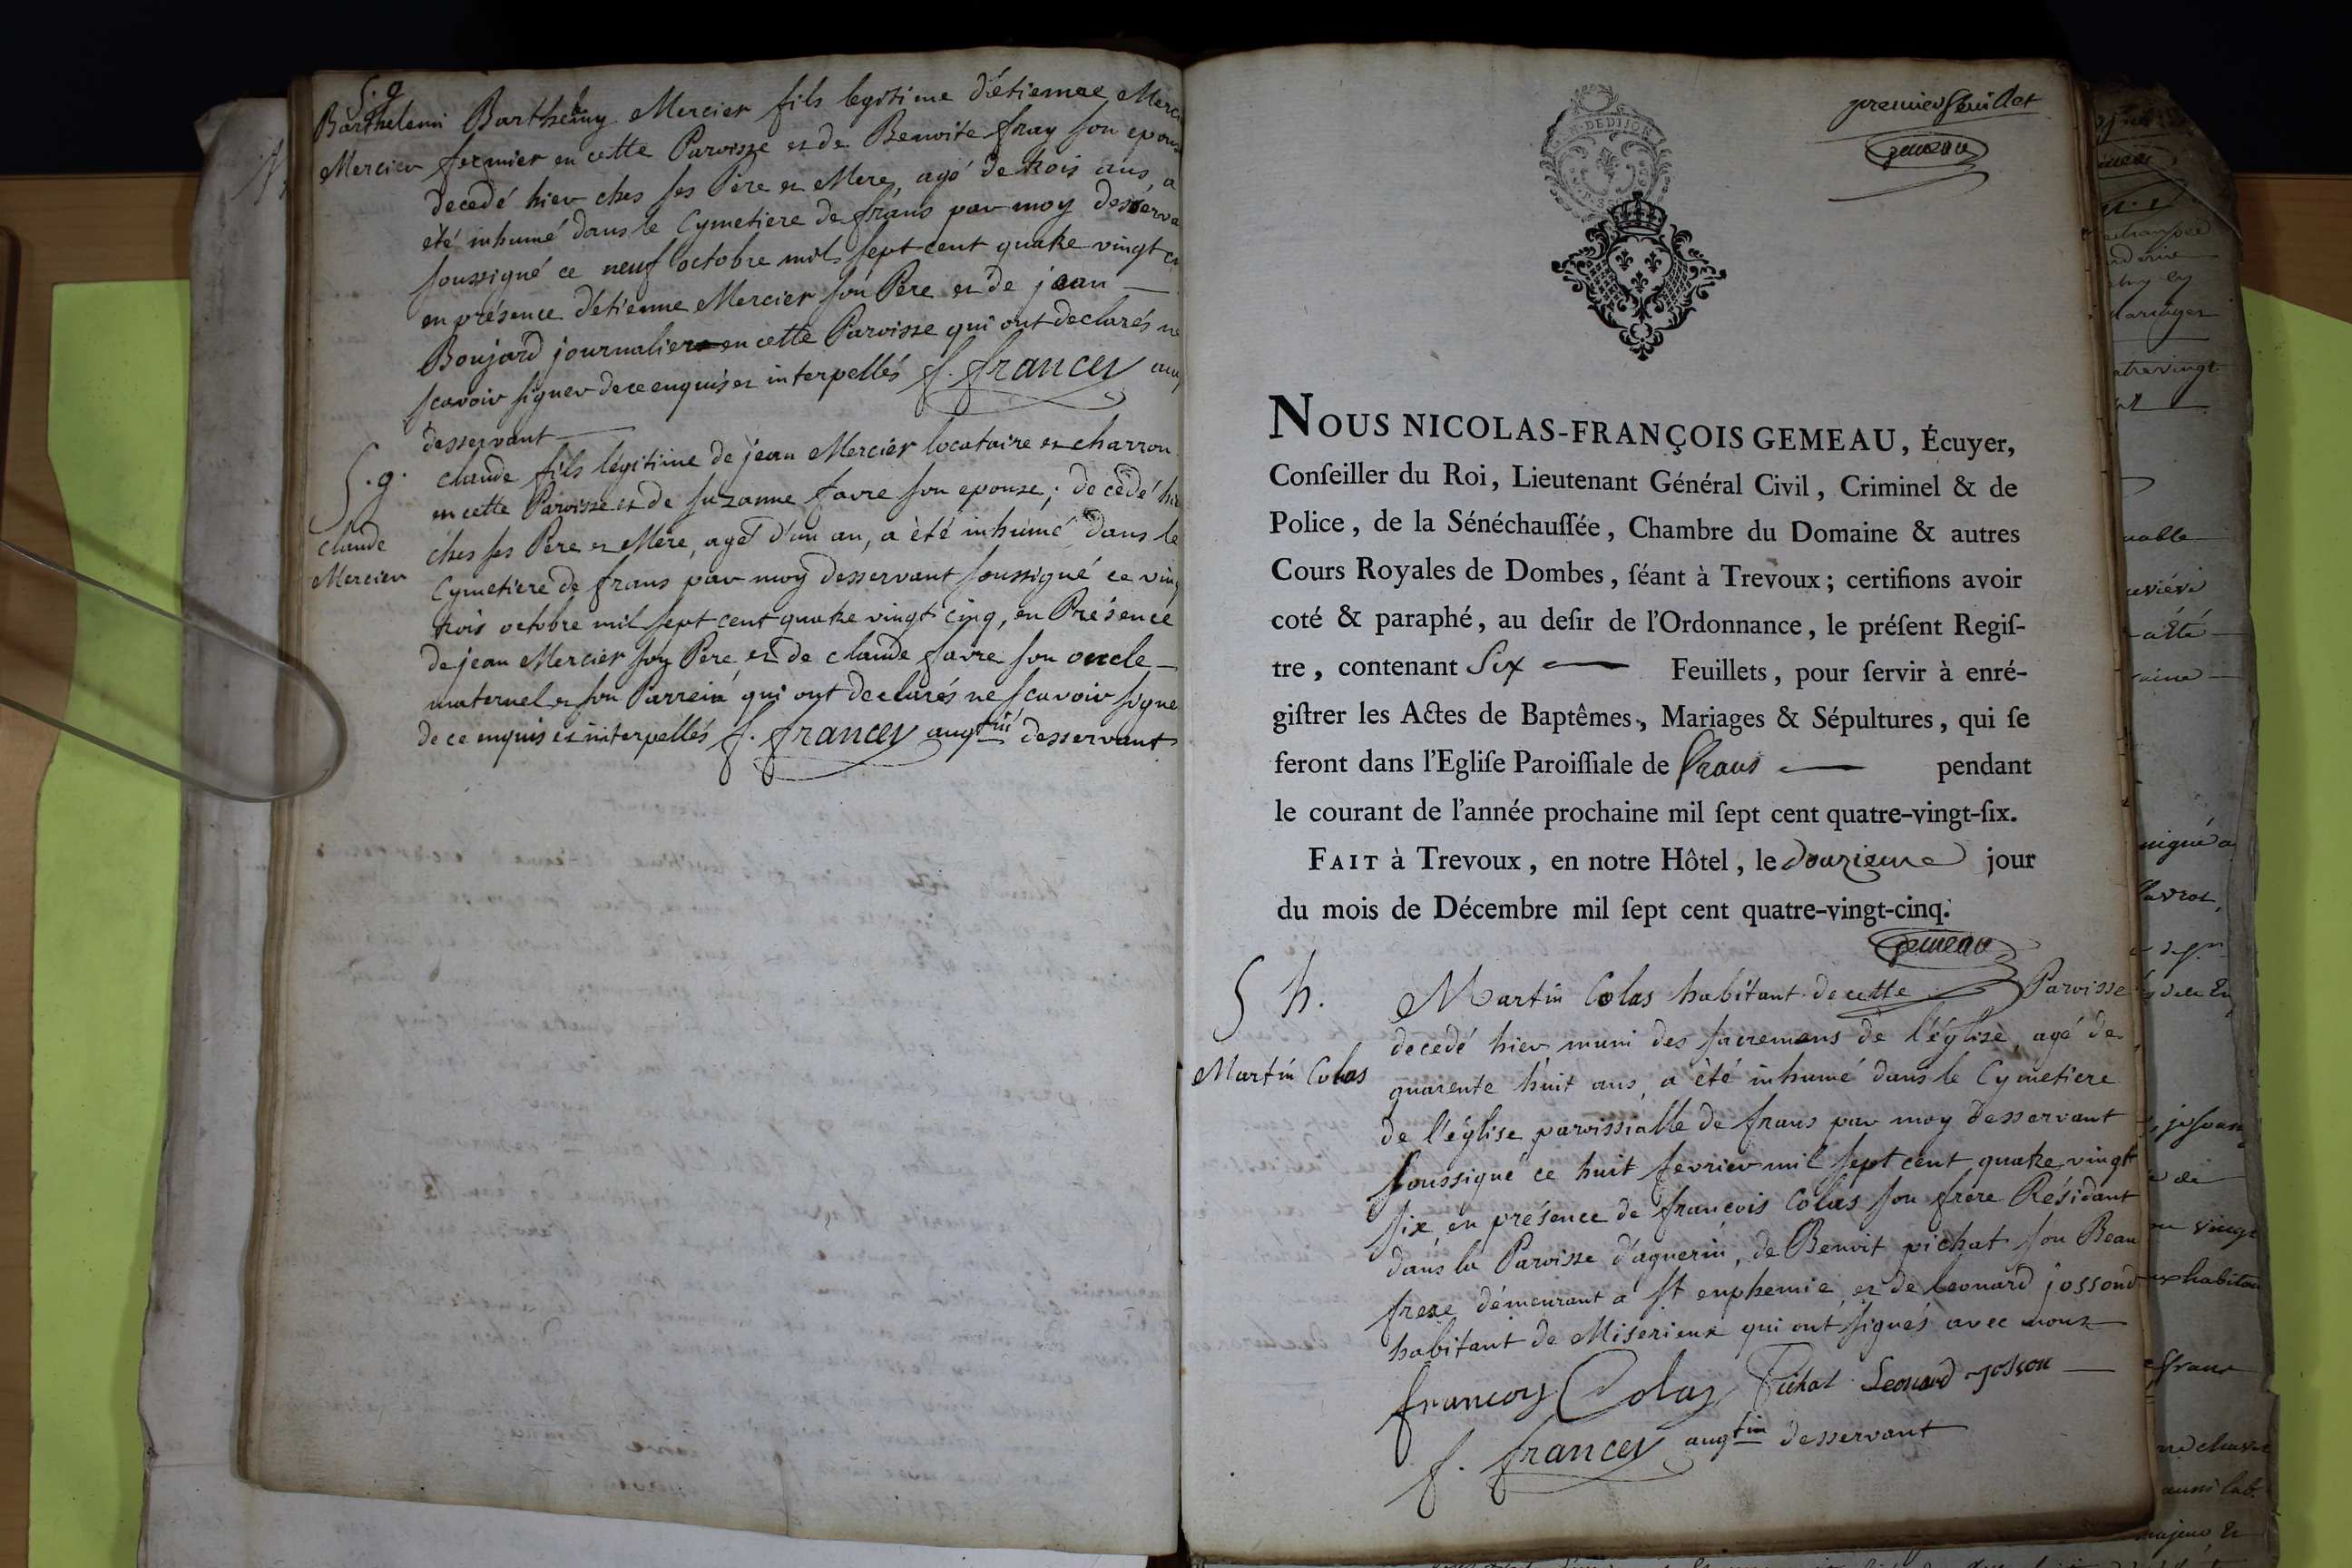 S. g
Barthelemi
Mercier
Barthelemy Mercier fils legitime d'étienne
fermier en cette Paroisse et de Benoite fray son epouse
decedé hier ches ses Pere et Mere, agé de trois ans, a
eté inhumé dans le Cymetiere de frans par moy
soussigné ce neuf octobre mil sept cent quatre vingt
en présence d'étienne Mercier son Pere et de jean —
Boujard journalier en cette Paroisse qui ont declarés ne
scavoir signer de ce enquis et interpellés f. francey
desservant —
S. g.
claude
Mercier
claude fils légitime de jean Mercier locataire et charron
en cette Paroisse et de suzanne favre son epouse; decedé
ches ses Pere et Mere, agé d'un an, a èté inhumé dans le
Cymetiere de frans par moy desservant soussigné ce
trois octobre mil sept cent quatre vingt cinq, en Présence
de jean Mercier son Pere et de claude favre son oncle —
maternel et son Parrein qui ont declarés ne scavoir
de ce enquis et interpellés f. francey augtin desservant
premier feuillet
gemeau
NOUS NICOLAS-FRANÇOIS GEMEAU, Écuyer,
Conſeiller du Roi, Lieutenant Général Civil, Criminel & de
Police, de la Sénéchauſſée, Chambre du Domaine & autres
Cours Royales de Dombes, ſéant à Trevoux; certifions avoir
coté & paraphé, au deſir de l'Ordonnance, le préſent Regiſ-
tre, contenant Six — Feuillets, pour ſervir à enré-
giſtrer les Actes de Baptêmes, Mariages & Sépultures, qui ſe
feront dans l'Egliſe Paroiſſiale de frans — pendant
le courant de l'année prochaine mil ſept cent quatre-vingt-ſix.
FAIT à Trevoux, en notre Hôtel, le douzieme jour
du mois de Décembre mil ſept cent quatre-vingt-cinq.
gemeau
S h.
Martin Colas
Martin Colas habitant de cette Paroisse
decedé hier muni des sacremens de l'église, agé de
quarente huit ans, a èté inhumé dans le Cymetiere
de l'église paroissialle de frans par moy desservant
soussigné ce huit fevrier mil sept cent quatre vingt
six, en présence de francois Colas son frere Résidant
dans la Paroisse d'aguerin, de Benoit pichat son Beau
frere démeurant a st euphemie, et de leonard jossond
habitant de Miserieux qui ont signés avec nous
francoy Colas Pichat Leonard josson —
f. francey augtin desservant